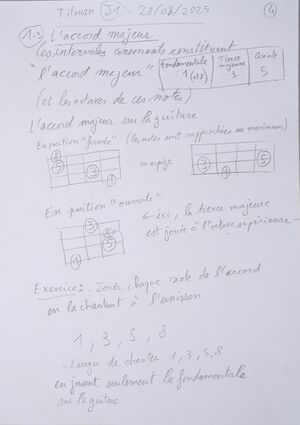 Titouan (J1) - 28/08/2025
4
1-3 L'accord majeur
Les intervalles consonants constituent
"l'accord majeur"
Fondamentale 1 (et 8) | Tierce majeure 3 | Quinte 5
(et les octaves de ces notes)
L'accord majeur sur la guitare
En position "fermée" (les notes sont rapprochées au maximum)
8 3 5 1
ou arpège
3 5 1
En position "ouverte"
3 8 5 1
← ici, la tierce majeure
est jouée à l'octave supérieure
Exercice : - Jouer chaque note de l'accord
en la chantant à l'unisson
1, 3, 5, 8
- Essayer de chanter 1, 3, 5, 8
en jouant seulement la fondamentale
sur la guitare